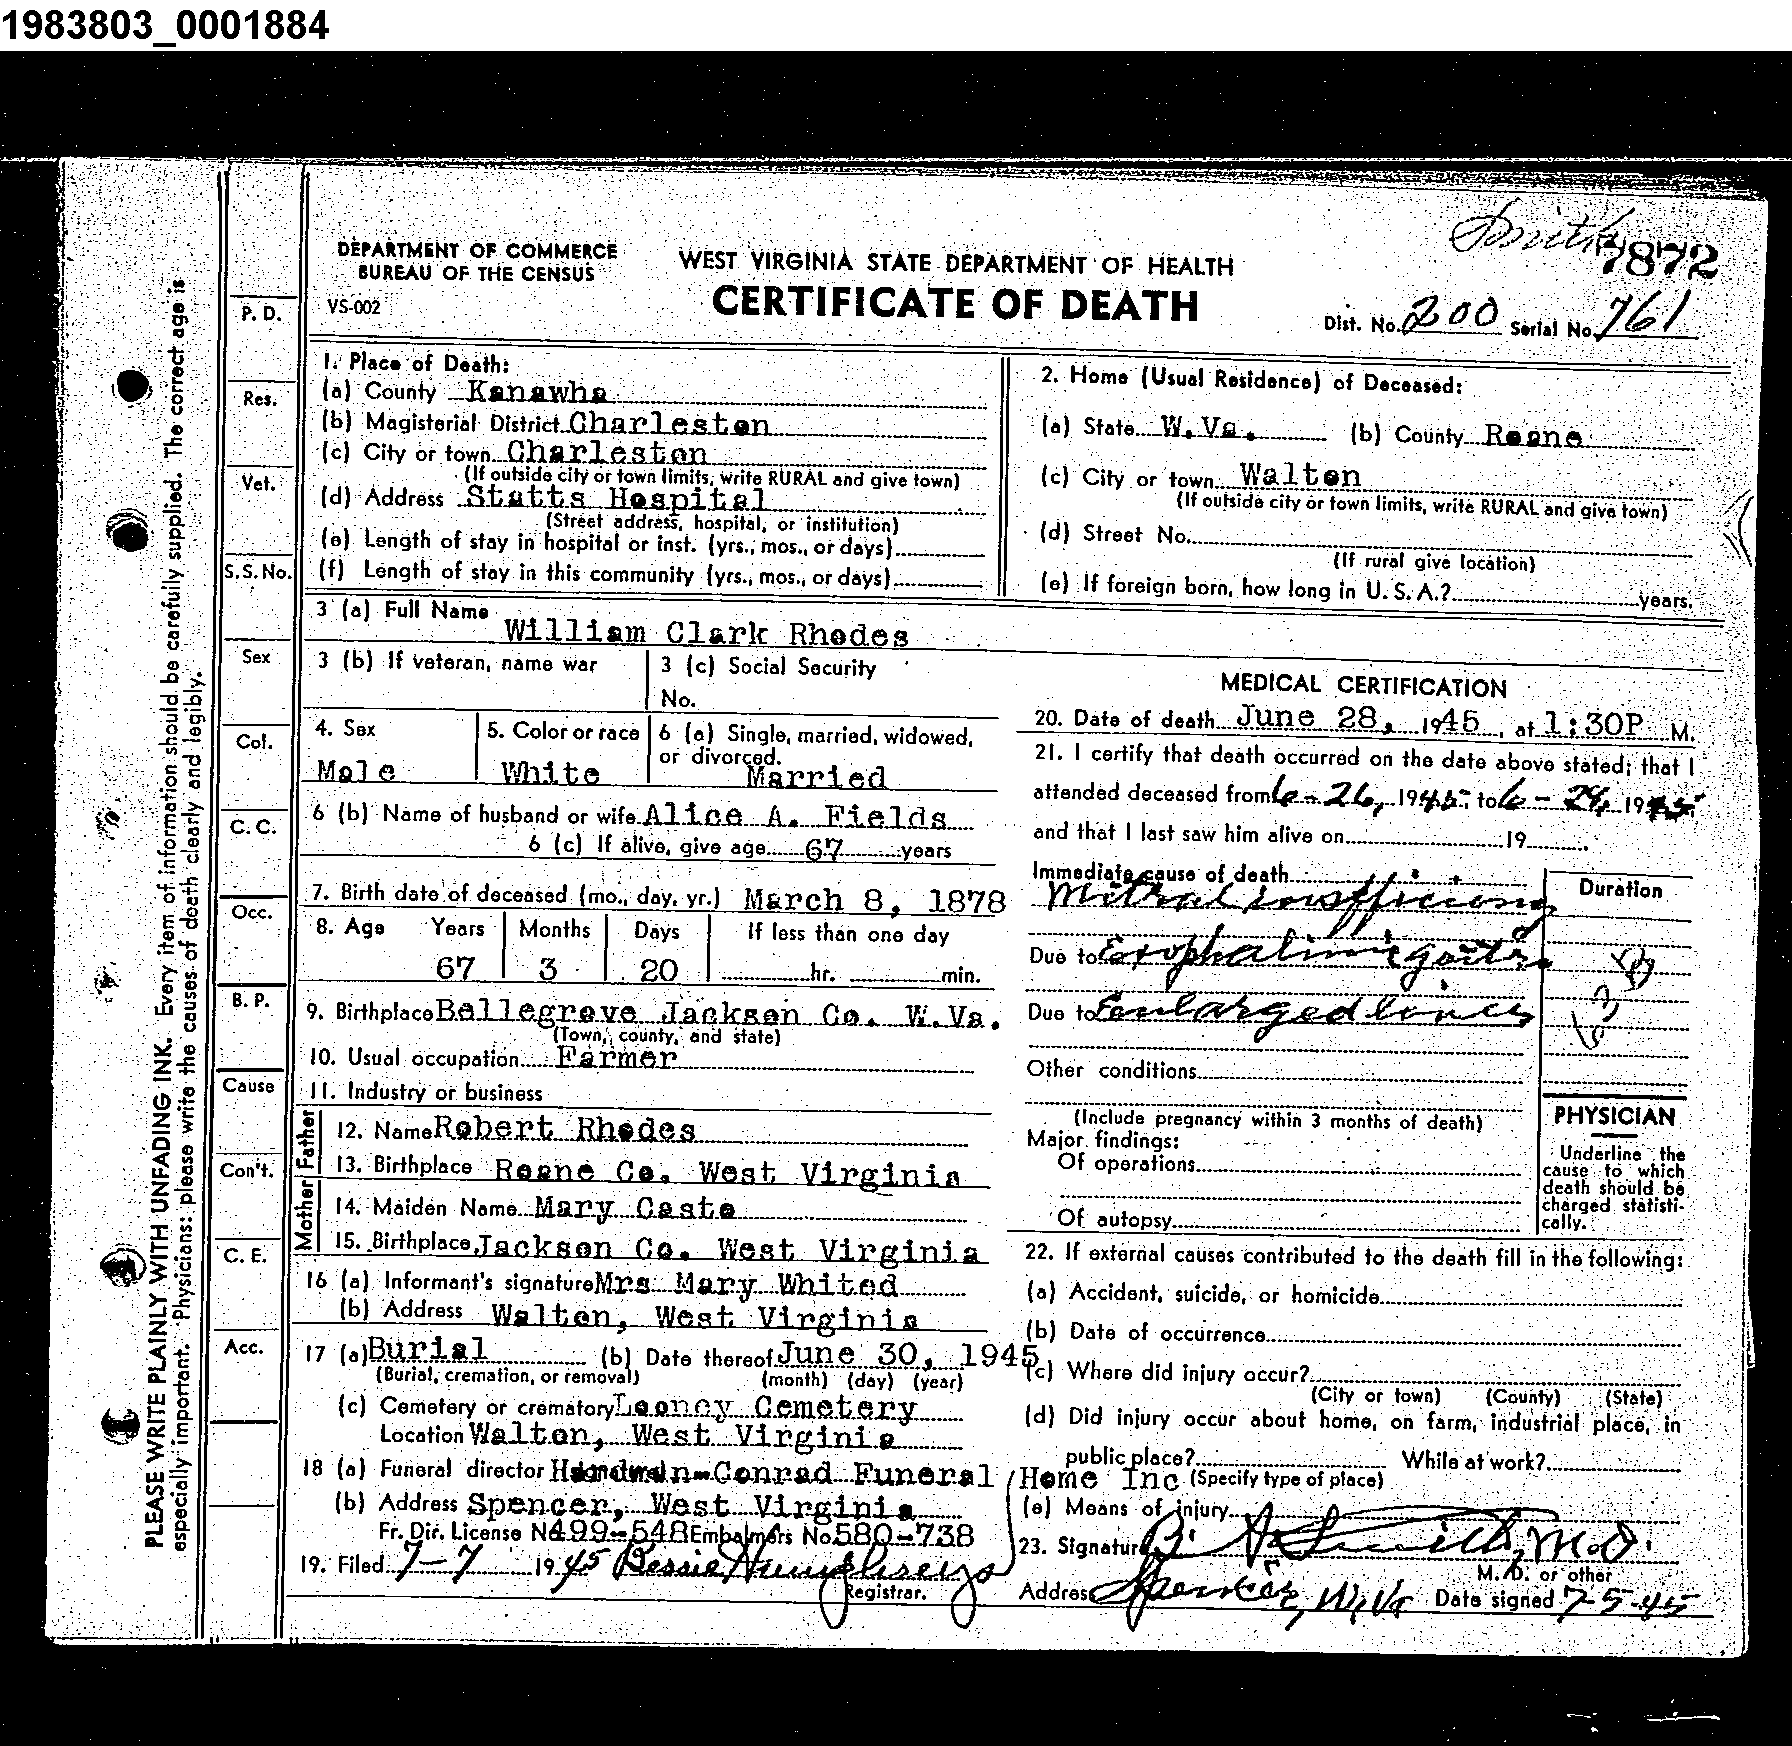 1983803_0001884
Smith
7872
DEPARTMENT OF COMMERCE
BUREAU OF THE CENSUS
VS-002
WEST VIRGINIA STATE DEPARTMENT OF HEALTH
CERTIFICATE OF DEATH
Dist. No. 200 Serial No. 761
PLEASE WRITE PLAINLY WITH UNFADING INK. Every item of information should be carefully supplied. The correct age is
especially important. Physicians: please write the causes of death clearly and legibly.
P. D.
Res.
Vet.
S. S. No.
Sex
Col.
C. C.
Occ.
B. P.
Cause
Con't.
C. E.
Acc.
1. Place of Death:
(a) County Kanawha
(b) Magisterial District Charleston
(c) City or town Charleston
(If outside city or town limits, write RURAL and give town)
(d) Address Statts Hospital
(Street address, hospital, or institution)
(e) Length of stay in hospital or inst. (yrs., mos., or days)
(f) Length of stay in this community (yrs., mos., or days)
2. Home (Usual Residence) of Deceased:
(a) State W.Va. (b) County Roane
(c) City or town Walton
(If outside city or town limits, write RURAL and give town)
(d) Street No.
(If rural give location)
(e) If foreign born, how long in U. S. A.? years.
3 (a) Full Name William Clark Rhodes
3 (b) If veteran, name war
3 (c) Social Security
No.
4. Sex
Male
5. Color or race
White
6 (a) Single, married, widowed,
or divorced.
Married
6 (b) Name of husband or wife Alice A. Fields
6 (c) If alive, give age 67 years
7. Birth date of deceased (mo., day, yr.) March 8, 1878
8. Age Years Months Days If less than one day
67 3 20 hr. min.
9. Birthplace Bellegrove Jackson Co. W.Va.
(Town, county, and state)
10. Usual occupation Farmer
11. Industry or business
Father
12. Name Robert Rhodes
13. Birthplace Roane Co. West Virginia
Mother
14. Maiden Name Mary Casto
15. Birthplace Jackson Co. West Virginia
16 (a) Informant's signature Mrs Mary Whited
(b) Address Walton, West Virginia
17 (a) Burial (b) Date thereof June 30, 1945
(Burial, cremation, or removal) (month) (day) (year)
(c) Cemetery or crematory Looney Cemetery
Location Walton, West Virginia
18 (a) Funeral director Hardman-Conrad Funeral Home Inc
(b) Address Spencer, West Virginia
Fr. Dir. License No 499-548 Embalmers No. 580-738
19. Filed 7-7 1945 Bessie Humphreys
Registrar.
MEDICAL CERTIFICATION
20. Date of death June 28, 1945, at 1:30P M.
21. I certify that death occurred on the date above stated; that I
attended deceased from 6-26, 1945, to 6-29, 1945
and that I last saw him alive on 19 .
Immediate cause of death
Duration
Mitral insufficiency
Due to Exophalimic goitre
Due to Enlarged liver
Other conditions
(Include pregnancy within 3 months of death)
Major findings:
Of operations
Of autopsy
PHYSICIAN
Underline the
cause to which
death should be
charged statisti-
cally.
22. If external causes contributed to the death fill in the following:
(a) Accident, suicide, or homicide
(b) Date of occurrence
(c) Where did injury occur?
(City or town) (County) (State)
(d) Did injury occur about home, on farm, industrial place, in
public place? While at work?
(Specify type of place)
(e) Means of injury
23. Signature Smith, M.D.
M. D. or other
Address Spencer, W.Va Date signed 7-5-45